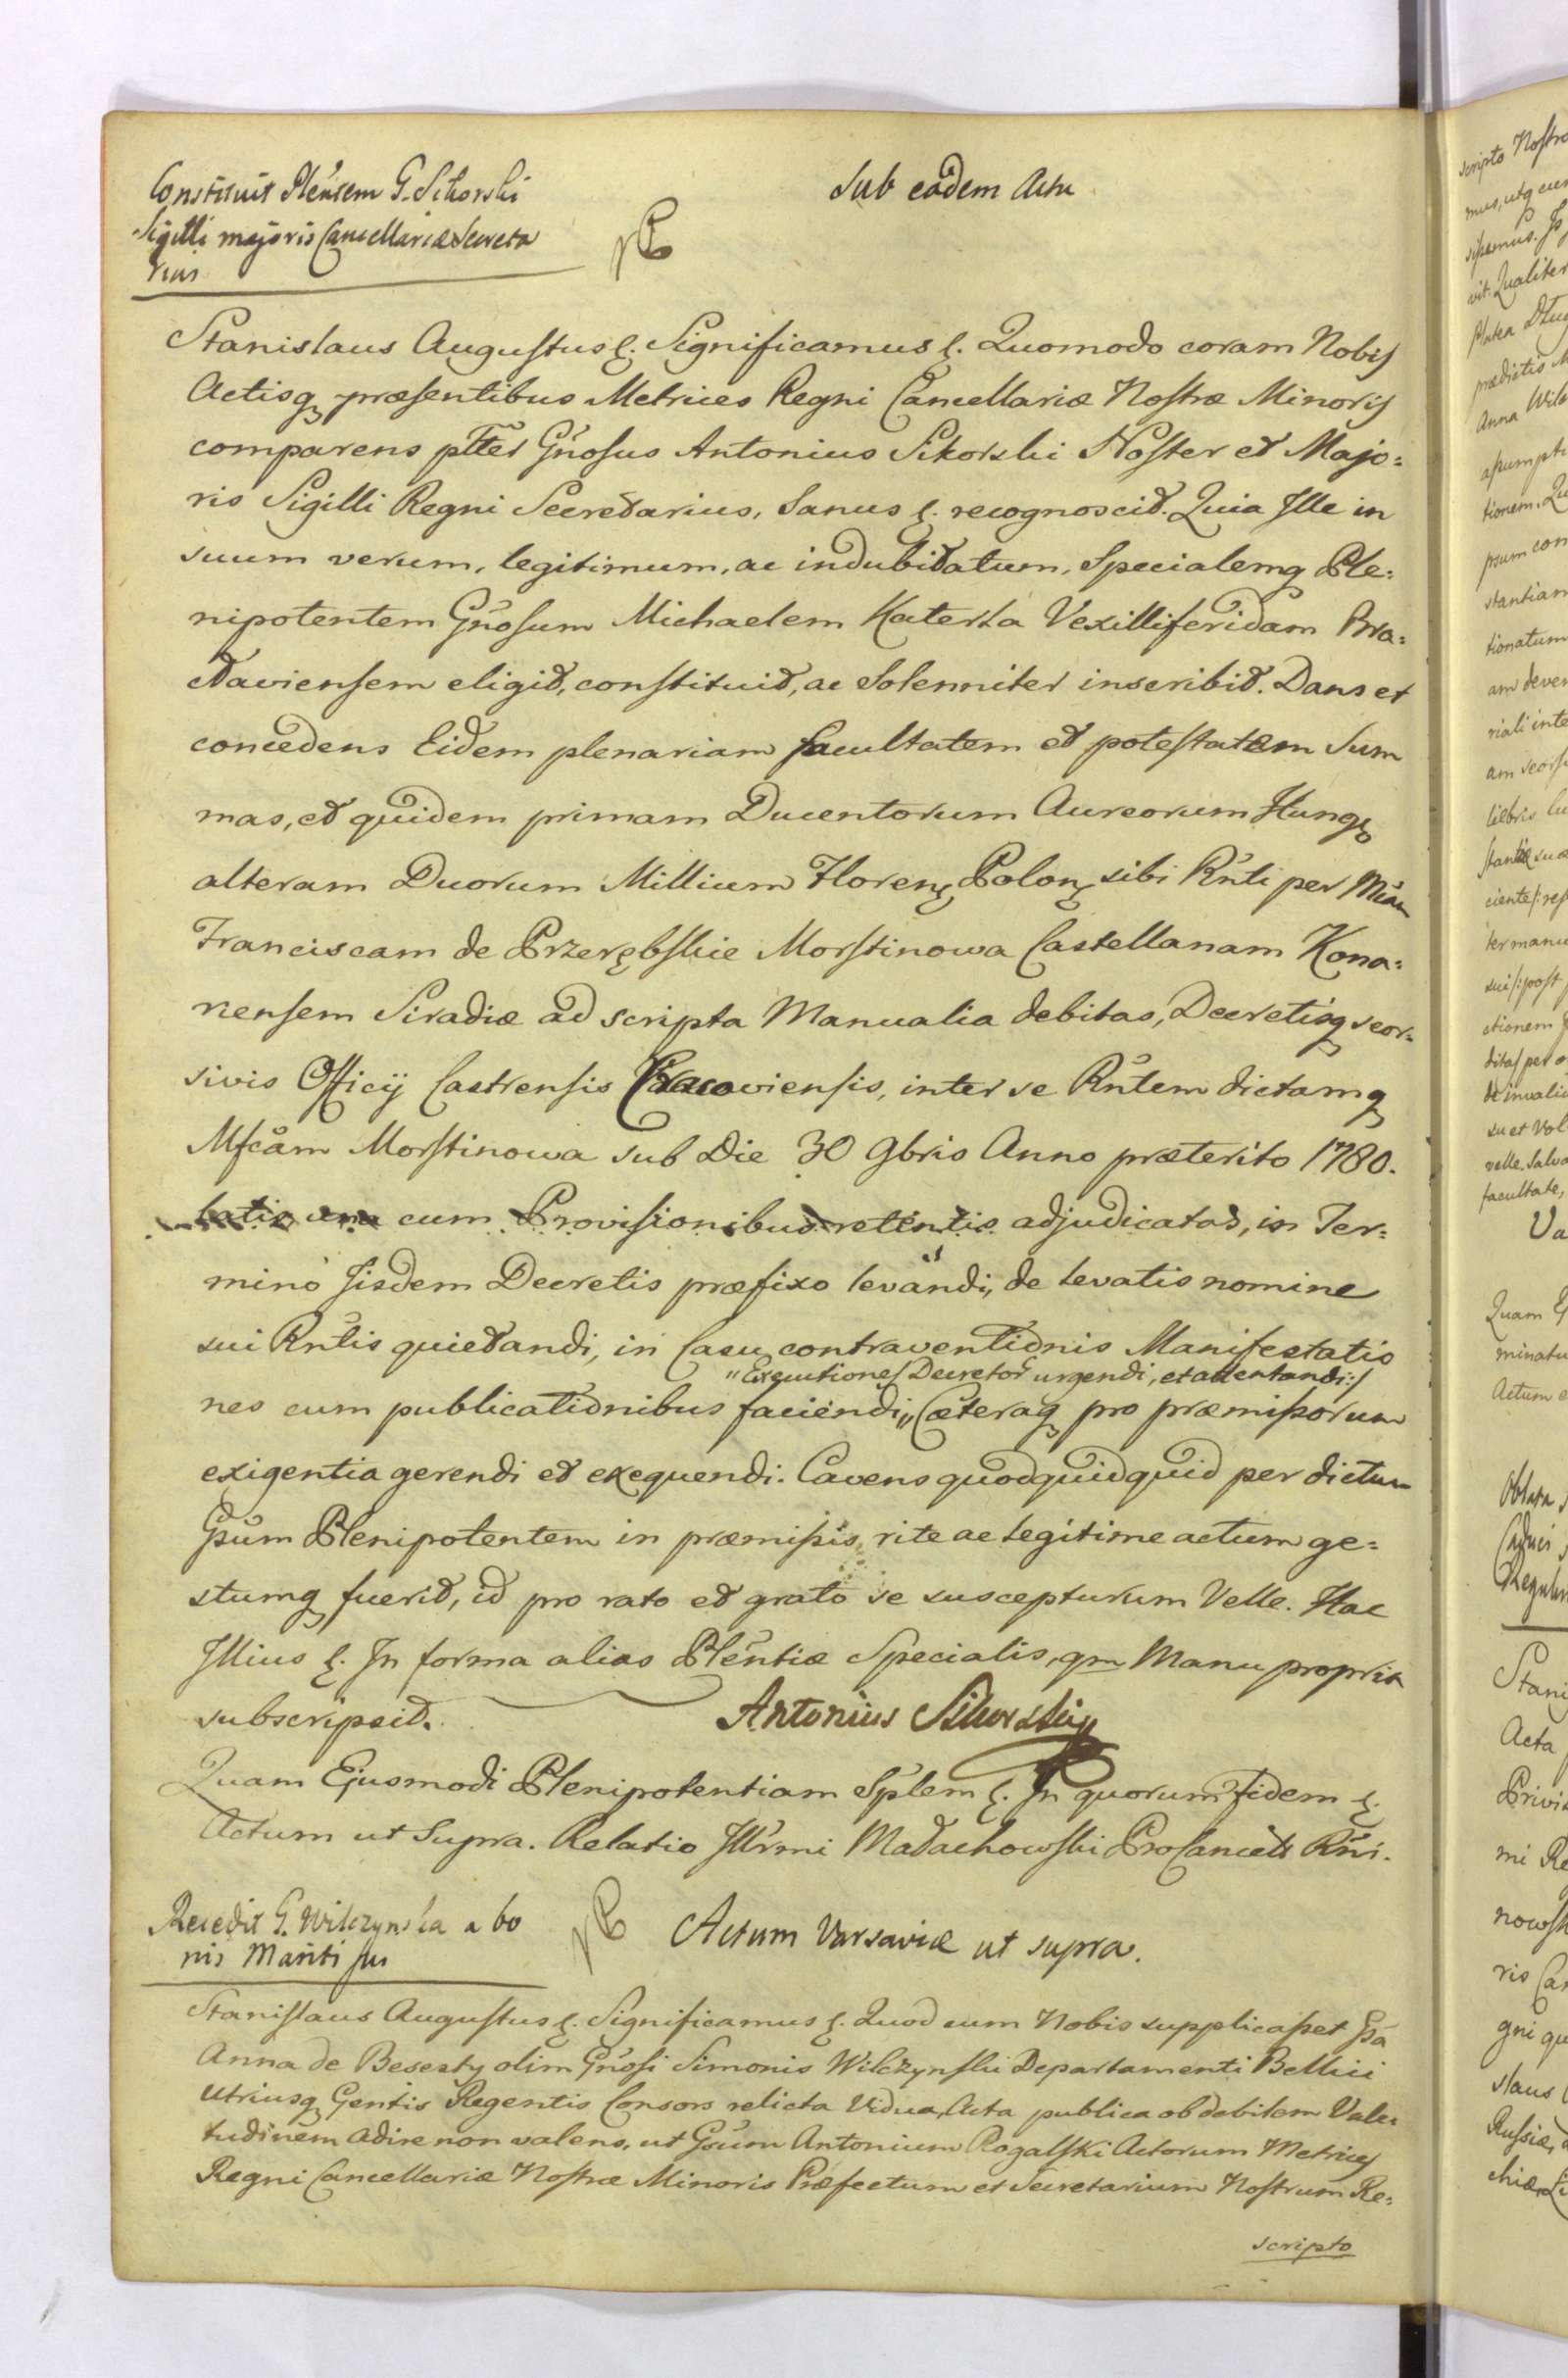 Constituit Plentem G. Sikorski
Sigilli majoris Cancellariæ Secreta
rius
Sub eadem Actu
Stanislaus Augustus &. Significamus &. Quomodo coram Nobis
Actisq præsentibus Metrices Regni Cancellariæ Nostræ Minoris
comparens pltes Gnosus Antonius Sikorski Noster et Majo=
ris Sigilli Regni Secretarius, Sanus &. recognoscit. Quia Ille in
suum verum, legitimum, ac indubitatum, Specialemq Ple=
nipotentem Gnosum Michaelem Katerla Vexilliferidam Bra=
claviensem eligit, constituit, ac Solenniter inscribit. Dans et
concedens Eidem plenariam facultatem et potestatem Sum
mas, et quidem primam Ducentorum Aureorum Hung
alteram Duorum Millium Floren Polon sibi Rnti per Mcam
Franciscam de Przerębskie Morstinowa Castellanam Kona=
nensem Siradiæ ad scripta Manualia debitas, Decretisq seor=
sivis Officij Castrensis Cracoviensis, inter se Rntem dictamq
Mfcam Morstinowa sub Die 30 9bris Anno præterito 1780.
latis una cum Provisionibus retentis adjudicatas, in Ter=
mino Iisdem Decretis præfixo levandi, de levatis nomine
sui Rntis quietandi, in Casu contraventionis Manifestatio
"Executiones Decretor urgendi, et attentandi:/
nes cum publicationibus faciendi," Cæteraq pro præmissorum
exigentia gerendi et exequendi. Cavens quod quidquid per dictum
Gsum Plenipotentem in præmissis, rite ac legitime actum ge=
stumq fuerit, id pro rato et grato se suscepturum Velle. Hac
Illius &. In forma alias Plentiæ Specialis, qm Manu propria
subscripsit. Antonius Sikorski
Quam Ejusmodi Plenipotentiam Splem &. In quorum fidem &.
Actum ut Supra. Relatio Illrmi Małachowski ProCancells Rni.
Recedit G. Wilczynska a bo
nis Mariti sui
Actum Varsaviæ ut supra.
Stanislaus Augustus &. Significamus &. Quod cum Nobis supplicasset Gsa
Anna de Besesty olim Gnosi Simonis Wilczynski Departamenti Bellici
Utriusq Gentis Regentis Consors relicta Vidua, Acta publica ob debilem Vale=
tudinem adire non valens, ut Gsum Antonium Rogalski Actorum Metrices
Regni Cancellariæ Nostræ Minoris Præfectum et Secretarium Nostrum Re=
scripto
scripto Nostro
vit. Qualiter
Platea
prædictis
Anna
tionem.
psum con
stantiam
tionatum
riali inte
ter manu
sui /: post
de invalid
su et Vol
velle. Salva
facultate,
Va
Quam
minatu
Actum
Oblata
Stani
Acta
mi Re
nowsk
ris Can
gni qu
slaus
Russiæ,